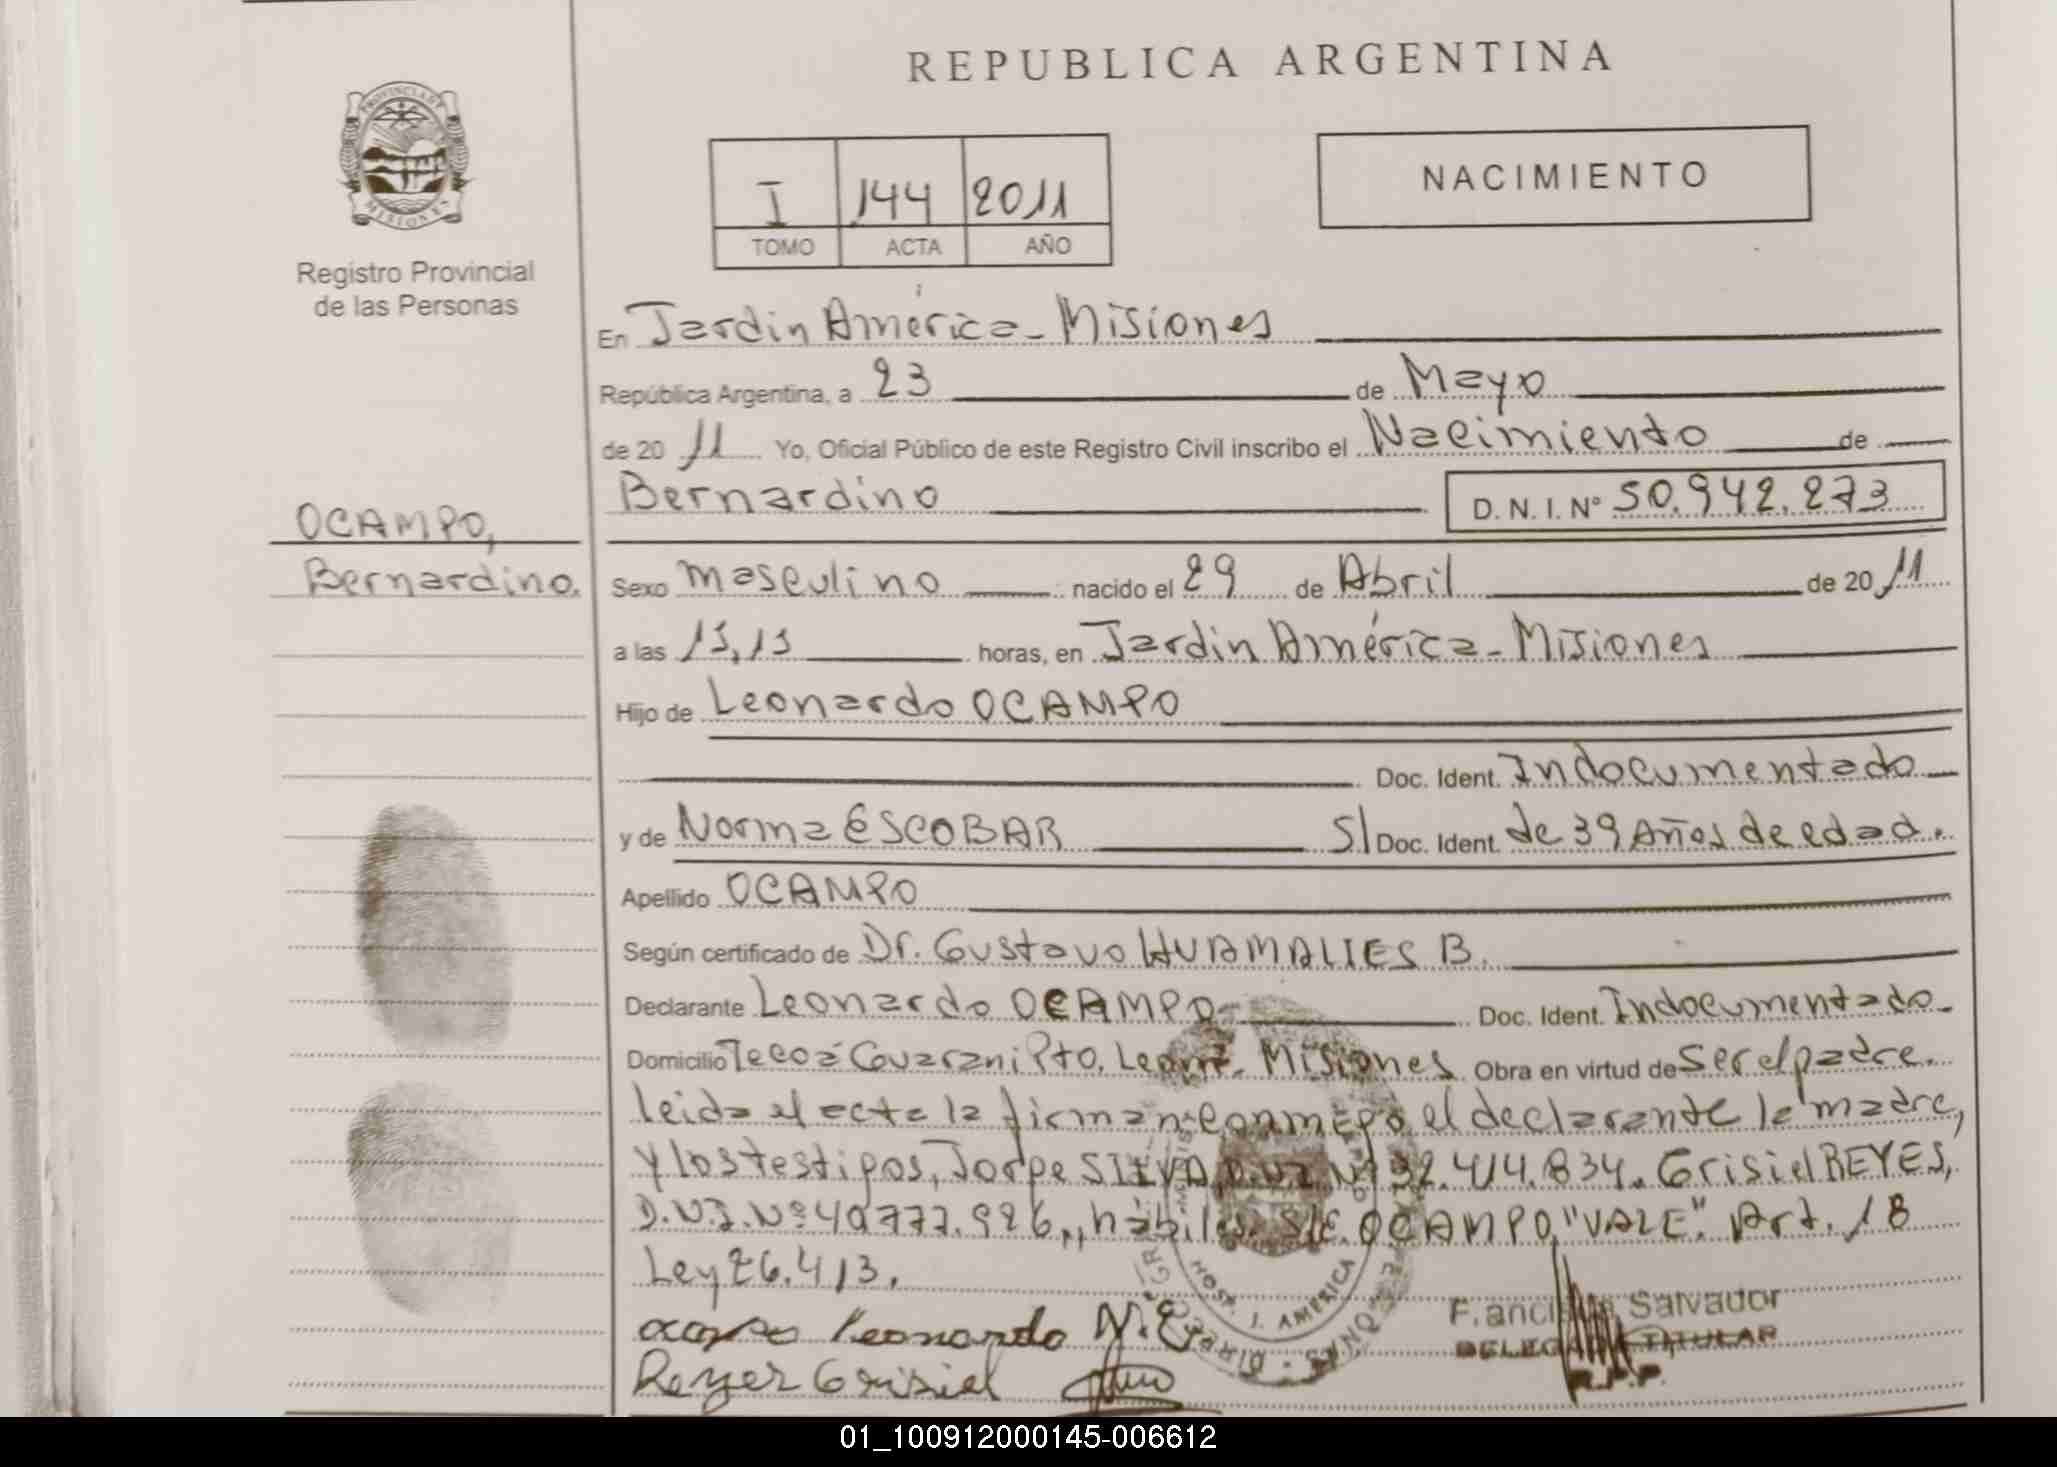 REPUBLICA ARGENTINA
PROVINCIA DE
MISIONES
Registro Provincial
de las Personas
I 144 2011
TOMO ACTA AÑO
NACIMIENTO
En Jardin América - Misiones
República Argentina, a 23 de Mayo
de 20 11 Yo, Oficial Público de este Registro Civil inscribo el Nacimiento de
Bernardino D. N. I. Nº 50.942.273
OCAMPO,
Bernardino.
Sexo masculino nacido el 29 de Abril de 20 11
a las 15,15 horas, en Jardin América - Misiones
Hijo de Leonardo OCAMPO
Doc. Ident. Indocumentado
y de Norma ESCOBAR S/ Doc. Ident. de 39 Años de edad.
Apellido OCAMPO
Según certificado de Dr. Gustavo HUAMALIES B.
Declarante Leonardo OCAMPO Doc. Ident. Indocumentado
Domicilio Tecoá Guarani Pto. Leoni - Misiones Obra en virtud de ser el padre.
leida el acta la firman conmigo el declarante la madre,
y los testigos, Jorge SILVA, D.N.I. Nº 32.414.834. Grisiel REYES,
D.N.I. Nº 40.777.926, hábiles. S/E. OCAMPO "VALE". Art. 18
Ley 26.413.
Leonardo N. E
Reyes Grisiel
HOSP. J. AMERICA
Salvador
DELEGADO TITULAR
R.P.P.
01_100912000145-006612